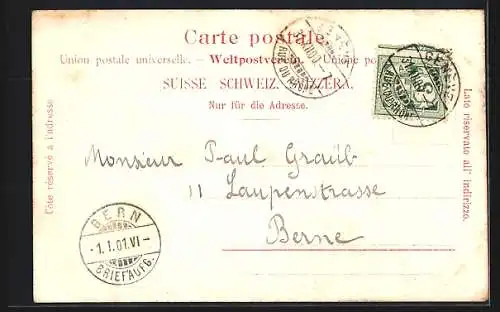 Carte postale.
Union postale universelle. – Weltpostverein. – Unione po
SUISSE SCHWEIZ. SVIZZERA.
Nur für die Adresse.
Côté réservé à l'adresse
Lato riservato all' indirizzo.
GENÈVE
RUE DU RHONE
Monsieur Paul Graüb
11 Laupenstrasse
Berne
BERN
-1.I.01.VI-
BRIEFAUFG.